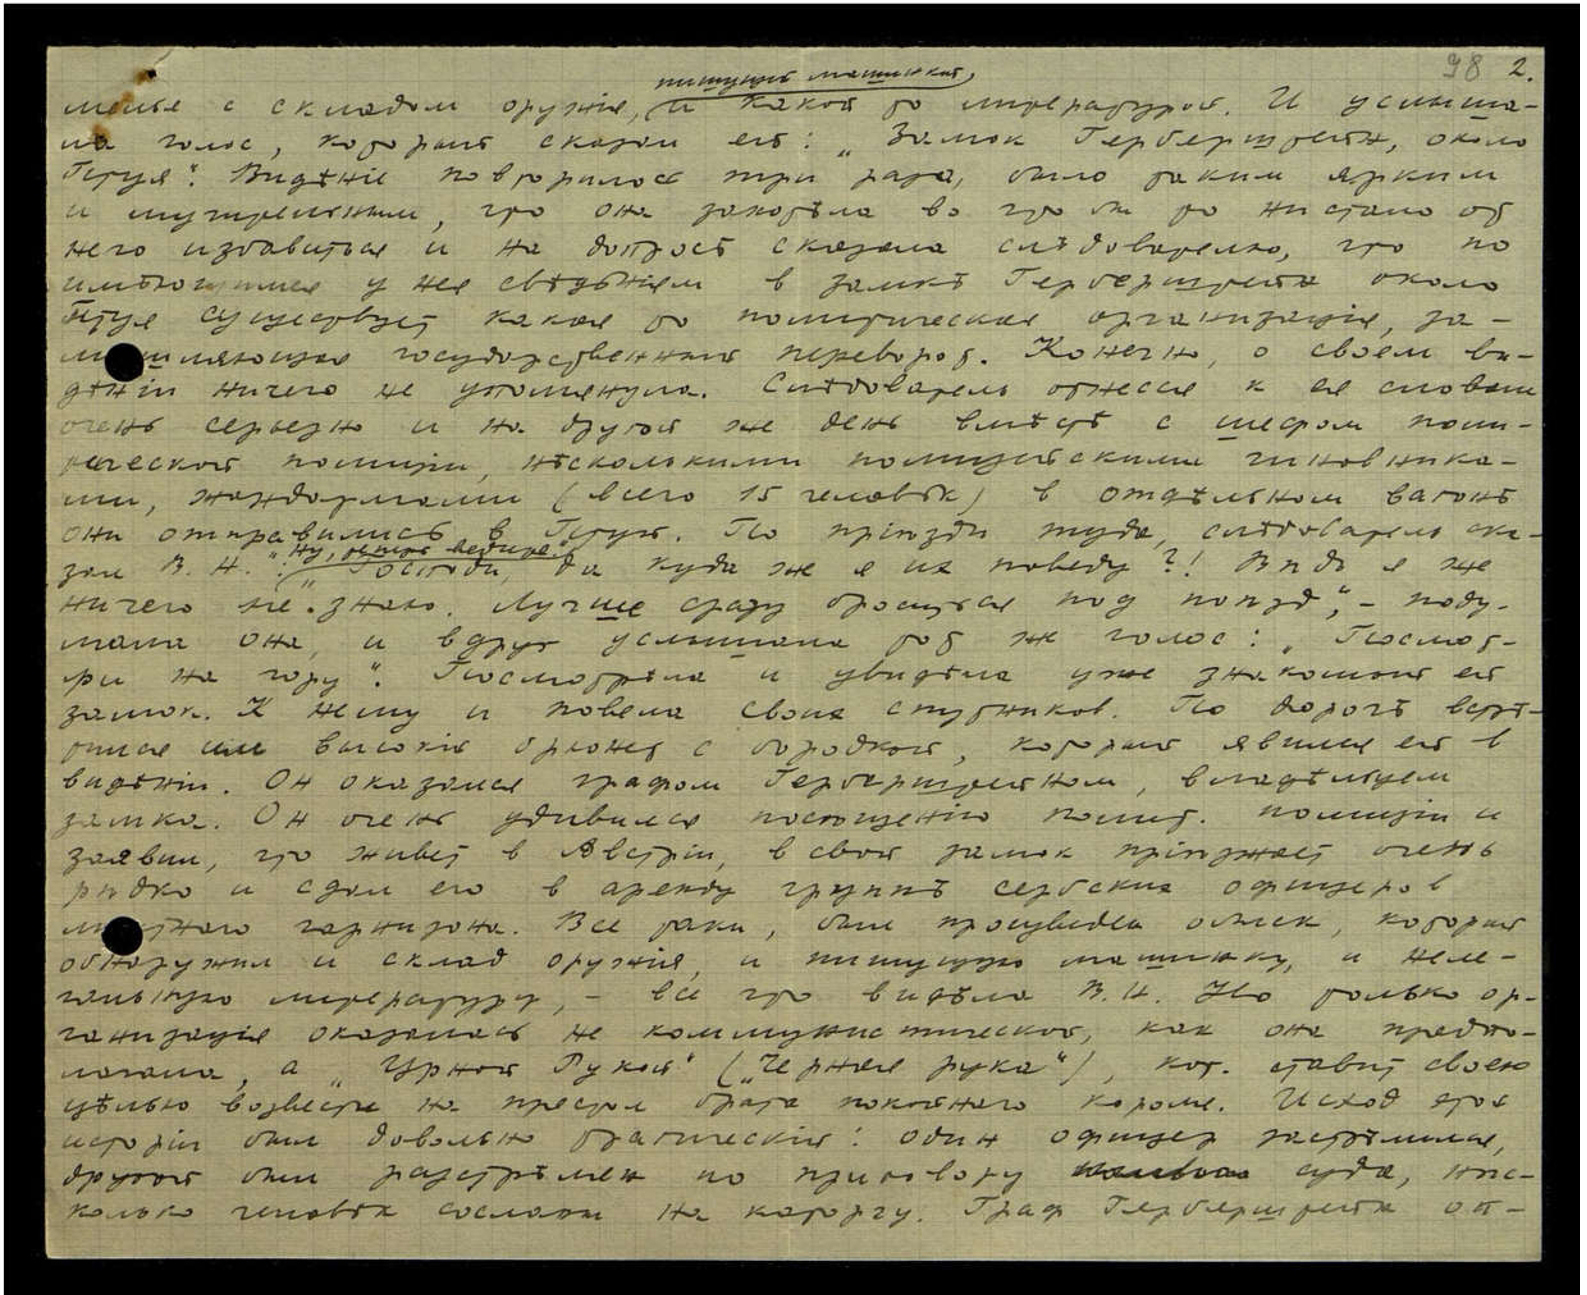 98 2.
пишущей машинкой,
мелье с складом оружія, и какой то литературой. И услыша-
ла голос, который сказал ей: „Замок Герберштейн, около
Птуя“. Видѣніе повторилось три раза, было таким ярким
и мучительным, что она захотѣла во что бы то ни стало от
него избавиться и на допросѣ сказала слѣдователю, что по
имѣющимся у нея свѣдѣніям в замкѣ Герберштейн около
Птуя существует какая то политическая организація, за-
мышляющая государственный переворот. Конечно, о своем ви-
дѣніи ничего не упомянула. Слѣдователь отнесся к ея словам
очень серьезно и на другой же день вмѣстѣ с шефом поли-
тической полиціи, нѣсколькими полицейскими чиновника-
ми, жандармами (всего 15 человѣк) в отдѣльном вагонѣ
они отправились в Птуй. По пріѣздѣ туда, слѣдователь ска-
„Ну, теперь ведите.“
зал В. Н.: „Господи, да куда же я их поведу?! Вѣдь я же
ничего не знаю. Лучше сразу броситься под поѣзд“, – поду-
мала она, и вдруг услышала тот же голос: „Посмот-
ри на гору“. Посмотрѣла и увидѣла уже знакомый ей
замок. К нему и повела своих спутников. По дорогѣ встрѣ-
тился им высокій брюнет с бородкой, который явился ей в
видѣніи. Он оказался графом Герберштейном, владѣльцем
замка. Он очень удивился посѣщенію полит. полиціи и
заявил, что живет в Австріи, в свой замок пріѣзжает очень
рѣдко и сдал его в аренду группѣ сербских офицеров
мѣстнаго гарнизона. Все таки, был произведен обыск, который
обнаружил и склад оружія, и пишущую машинку, и неле-
гальную литературу, – все что видѣла В. Н. Но только ор-
ганизація оказалась не коммунистической, как она предпо-
лагала, а „Црной Рукой“ („Черная рука“), кот. ставит своею
цѣлью возвести на престол брата покойнаго короля. Исход этой
исторіи был довольно трагическій: один офицер застрѣлился,
другой был разстрѣлен по приговору суда, нѣс-
колько человѣк сосланы на каторгу. Граф Герберштейн от-